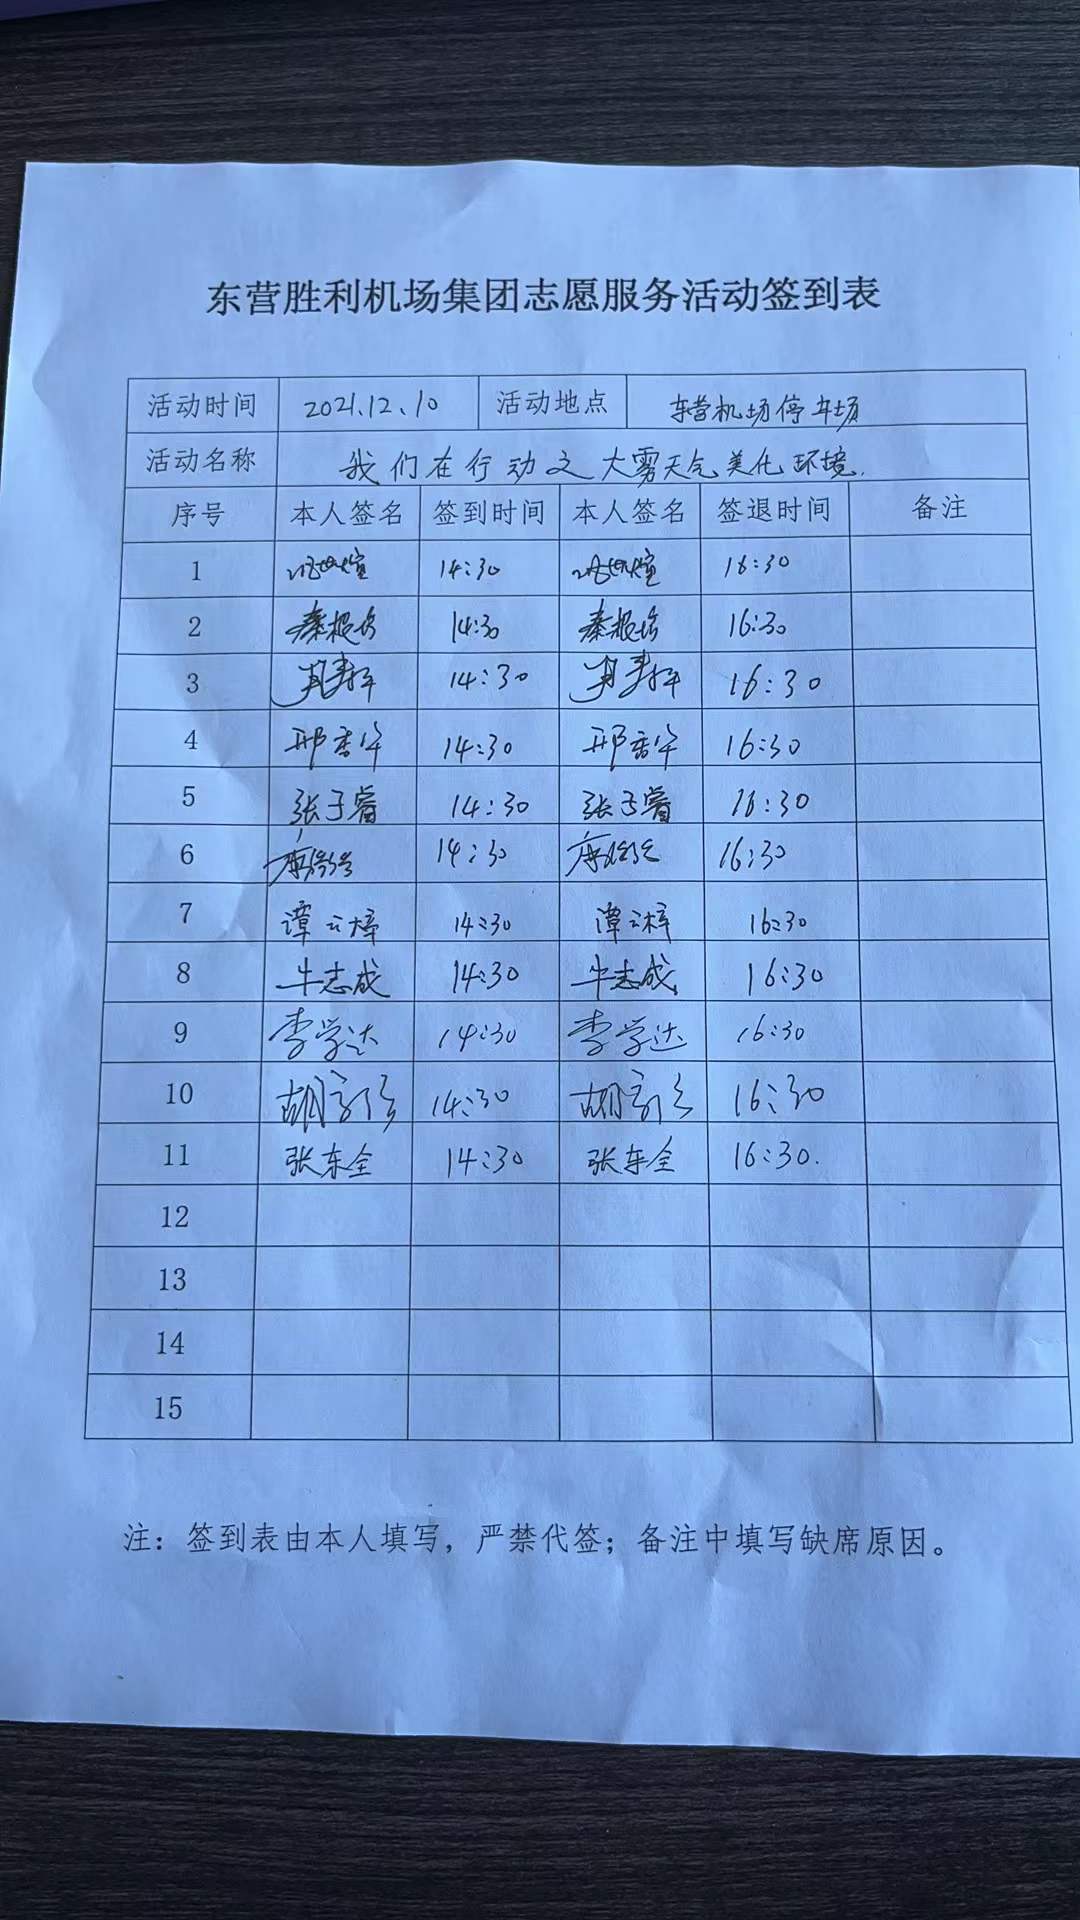 东营胜利机场集团志愿服务活动签到表
活动时间 2021.12.10 活动地点 东营机场停车场
活动名称 我们在行动之大雾天气美化环境.
序号 本人签名 签到时间 本人签名 签退时间 备注
1 14:30 16:30
2 秦根培 14:30 秦根培 16:30
3 14:30 16:30
4 邢香华 14:30 邢香华 16:30
5 张子睿 14:30 张子睿 16:30
6 14:30 16:30
7 谭云梓 14:30 谭云梓 16:30
8 牛志成 14:30 牛志成 16:30
9 李学达 14:30 李学达 16:30
10 14:30 16:30
11 张东全 14:30 张东全 16:30.
12
13
14
15
注：签到表由本人填写，严禁代签；备注中填写缺席原因。